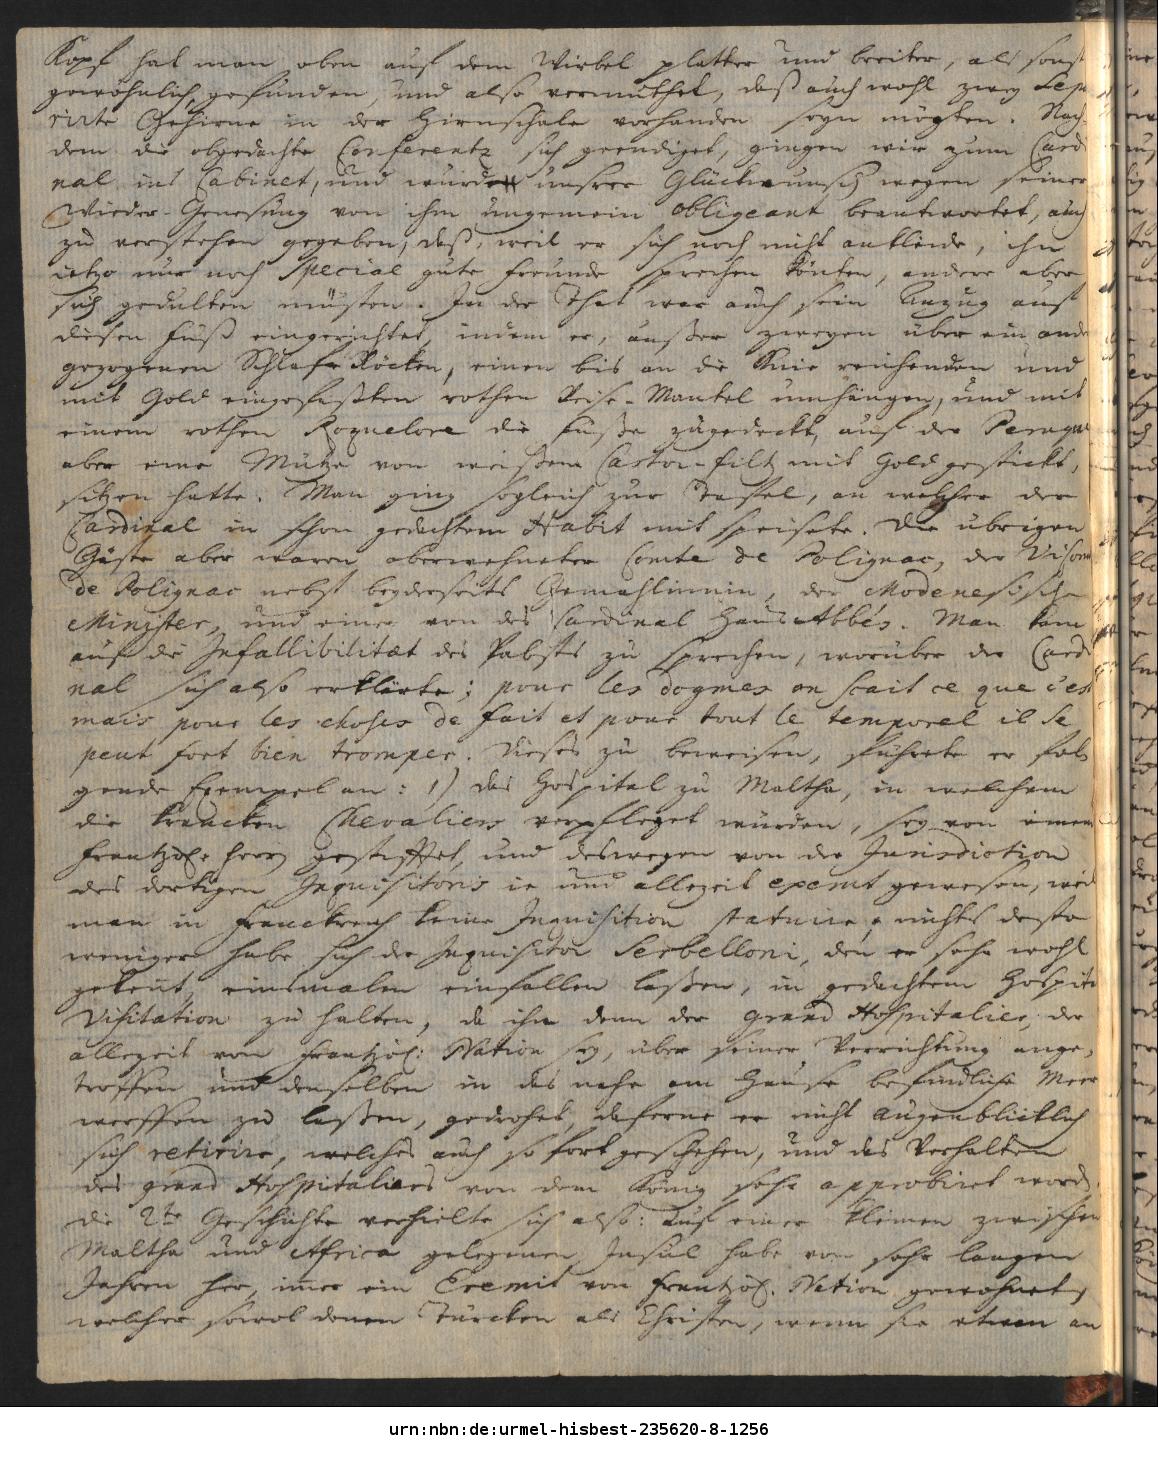 Kopf hat man oben auf dem Wirbel platter und breiter, als sonst
gewöhnlich, gefunden, und also vermuthet, daß auch wohl zwey sepa
rirte Gehirne in der Hirnschale vorhanden seyn mögten. Nach-
dem die obgedachte Conferentz sich geendiget, gingen wir zum Cardi
nal ins Cabinet, und wurde unsrer Glückwunsch wegen seiner
Wieder-Genesung von ihm ungemein obligeant beantwortet, auch
zu verstehen gegeben, daß, weil er sich noch nicht ankleide, ihn
ietzo nur noch special gute Freunde sprechen könten, andere aber
sich gedulten müsten. In der That war auch sein Anzug auf
diesen Fuß eingerichtet, indem er, außer zweyen über ein ander
gezogenen Schlaf-Röcken, einen bis an die Knie reichenden und
mit Gold eingefaßten rothen Reise-Mantel umhängen, und mit
einem rothen Roquelore die Füße zugedeckt, auf der Peruque
aber eine Mütze von weißem Castor-filtz mit Gold gestickt,
sitzen hatte. Man ging sogleich zur Taffel, an welcher der
Cardinal in schon gedachtem Habit mit speisete. Die übrigen
Gäste aber waren oberwehnter Comte de Polignac, der Vicomte
de Polignac nebst beyderseits Gemahlinnin, der Modenesische
Minister, und einer von des Cardinal Haus Abbés. Man kam
auf die Infallibilitæt des Pabsts zu sprechen, worüber der Cardi
nal sich also erklärte; pour les dogmes on scait ce que c'est
mais pour les choses de fait et pour tout le temporel il se
peut fort bien tromper. Dieses zu beweisen, führete er fol
gende Exempel an: 1) das Hospital zu Maltha, in welchem
die krancken Chevaliers verpfleget würden, sey von einem
Frantzös. Herrn gestifftet, und deswegen von der Jurisdiction
des dortigen Inquisitoris ie und allezeit exemt gewesen, weil
man in Franckreich keine Inquisition statuire; nichts desto
weniger habe sich der Inquisitor Serbelloni, den er sehr wohl
gekennt, einsmalen einfallen laßen, in gedachtem Hospital
Visitation zu halten, da ihn denn der grand Hospitalier, der
allezeit von Frantzös: Nation sey, über seiner Verrichtung ange-
troffen und denselben in das nahe am Hause befindliche Meer
werffen zu laßen, gedrohet, daferne er nicht augenblicklich
sich retirire, welches auch so fort geschehen, und das Verhalten
des grand Hospitaliers von dem König sehr approbiret word.
die 2te Geschichte verhielte sich also: auf einer kleinen zwischen
Maltha und Africa gelegenen Insul habe von sehr langen
Jahren her, immer ein Eremit von Frantzös. Nation gewohnet,
welcher sowol denen Türcken als Christen, wenn sie etwan an
urn:nbn:de:urmel-hisbest-235620-8-1256